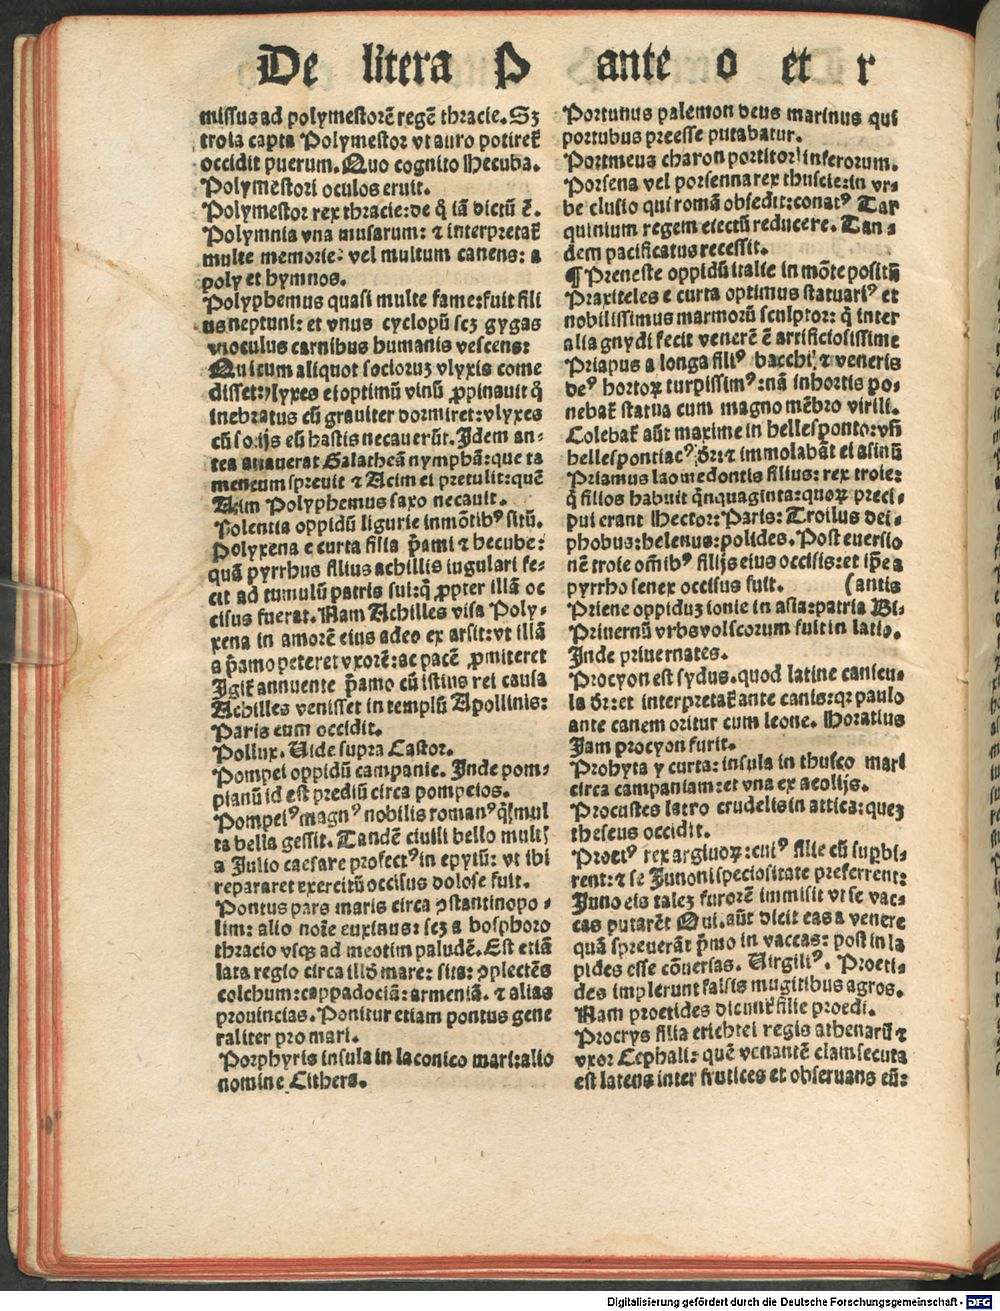 De litera P ante o et r
missus ad polymestorē regē thracie. Sʒ
troia capta Polymestor vt auro potiret̄
occidit puerum. Quo cognito Hecuba.
Polymestori oculos eruit.
Polymestor rex thracie: de q̄ iā dictū ē.
Polymnia vna musarum: ⁊ interpretat̄
multe memorie: vel multum canens: a
poly et hymnos.
Polyphemus quasi multe fame: fuit fili
us neptuni: et vnus cyclopū scʒ gygas
vnoculus carnibus humanis vescens:
Qui cum aliquot sociorus vlyxis come
disset: vlyxes ei optimū vinū ꝓpinauit q̄
inebratus cū grauiter dormiret: vlyxes
cū socijs eū hastis necauerūt. Idem an⸗
tea amauerat Galatheā nymphā: que ta
men eum spreuit ⁊ Acim ei pretulit: quē
Acim Polyphemus saxo necauit.
Polentia oppidū ligurie in mōtibꝰ sitū.
Polyxena e curta filia p̄ami ⁊ hecube:
quā pyrrhus filius achillis iugulari fe⸗
cit ad tumulū patris sui: q̄ ꝓpter illā oc
cisus fuerat. Nam Achilles visa Poly⸗
xena in amorē eius adeo ex arsit: vt illā
a p̄amo peteret vxorē: ac pacē ꝓmiteret
Igit̄ annuente p̄amo cū istius rei causa
Achilles venisset in templū Apollinis:
Paris eum occidit.
Pollux. Uide supra Castor.
Pompei oppidū campanie. Inde pom⸗
pianū id est prediū circa pompeios.
Pompeiꝰ magnꝰ nobilis romanꝰ q̄ mul
ta bella gessit. Tandē ciuili bello mult
a Julio caesare profectꝰ in epytū: vt ibi
repararet exercitū occisus dolose fuit.
Pontus pars maris circa ꝯstantinopo⸗
lim: alio noīe euxinus: scʒ a bosphoro
thracio vsqꝫ ad meotim paludē. Est etiā
lata regio circa illō mare: sita: ꝯplectēs
colchum: cappadociā: armeniā. ⁊ alias
prouincias. Ponitur etiam pontus gene
raliter pro mari.
Porphyris insula in laconico mari: alio
nomine Cithera.
Portunus palemon deus marinus qui
portubus preesse putabatur.
Portmeus charon portitor inferorum.
Porsena vel porsenna rex thuscie: in vr⸗
be clusio qui romā obsedit: conatꝰ Tar
quinium regem eiectū reducere. Tan⸗
dem pacificatus recessit.
¶ Preneste oppidū italie in mōte positū
Praxiteles e curta optimus statuariꝰ et
nobilissimus marmorū sculptor: q̄ inter
alia gnydi fecit venerē ē artificiosissime
Priapus a longa filiꝰ bacchi ⁊ veneris
deꝰ hortoꝝ turpissimꝰ: nā in hortis po⸗
nebat̄ statua cum magno mēbro virili.
Colebat̄ aūt maxime in hellesponto: vn̄
hellespontiacꝰ dr̄: ⁊ immolabāt ei asinū
Priamus laomedontis filius: rex troie:
q̄ filios habuit q̄nquaginta: quoꝝ preci⸗
pui erant Hector: Paris: Troilus dei⸗
phobus: helenus: polides. Post euersio
nē troie om̄ibꝰ filijs eius occisis: et ip̄e a
pyrrho senex occisus fuit. (antis
Priene oppiduʒ ionie in asia: patria Bi⸗
Priuernū vrbs volscorum fuit in latio.
Inde priuernates.
Procyon est sydus. quod latine canicu⸗
la dr̄: et interpretat̄ ante canis: qꝛ paulo
ante canem oritur cum leone. Horatius
Jam procyon furit.
Prohyta y curta: insula in thusco mari
circa campaniam: et vna ex aeolijs.
Procustes latro crudelis in attica: queʒ
theseus occidit.
Proetꝰ rex argiuoꝝ: cuiꝰ filie cū suꝑbi⸗
rent: ⁊ se Junoni speciositate preferrent:
Juno eis taleʒ furorē immisit vt se vac⸗
cas putarēt Qui. aūt dicit eas a venere
quā spreuerāt p̄mo in vaccas: post in la
pides esse cōuersas. Uirgiliꝰ. Proeti⸗
des implerunt falsis mugitibus agros.
Nam proetides dicunt̄ filie proedi.
Procrys filia erichtei regis athenarū ⁊
vxor Cephali: quē venantē clam secuta
est latens inter frutices et obseruans eū:
Digitalisierung gefördert durch die Deutsche Forschungsgemeinschaft - DFG